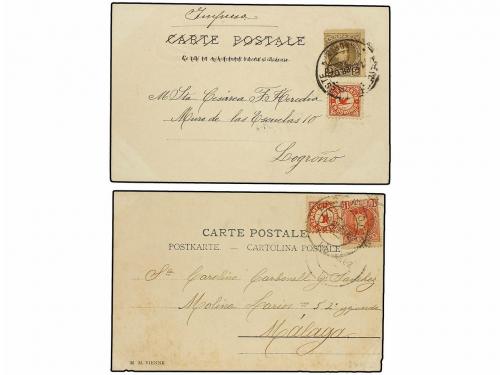 Impresa
CARTE POSTALE
M Sta Cesárea F. Heredia
Muro de las Escuelas 10
Logroño
CARTE POSTALE
POSTKARTE. — CARTOLINA POSTALE
Sta Carolina Carbonell y Sanchez
Molina Larios = 5 2º izquierda
Málaga
M. M. VIENNE